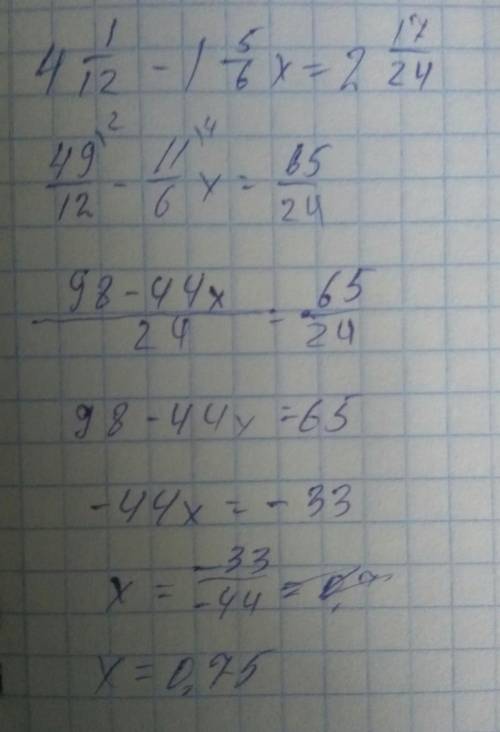 4 1/12 - 1 5/6 x = 2 17/24
49\2/12 - 11\4/6 x = 65/24
98 - 44x/24 = 65/24
98 - 44x = 65
-44x = -33
x = -33/-44 =
x = 0,75